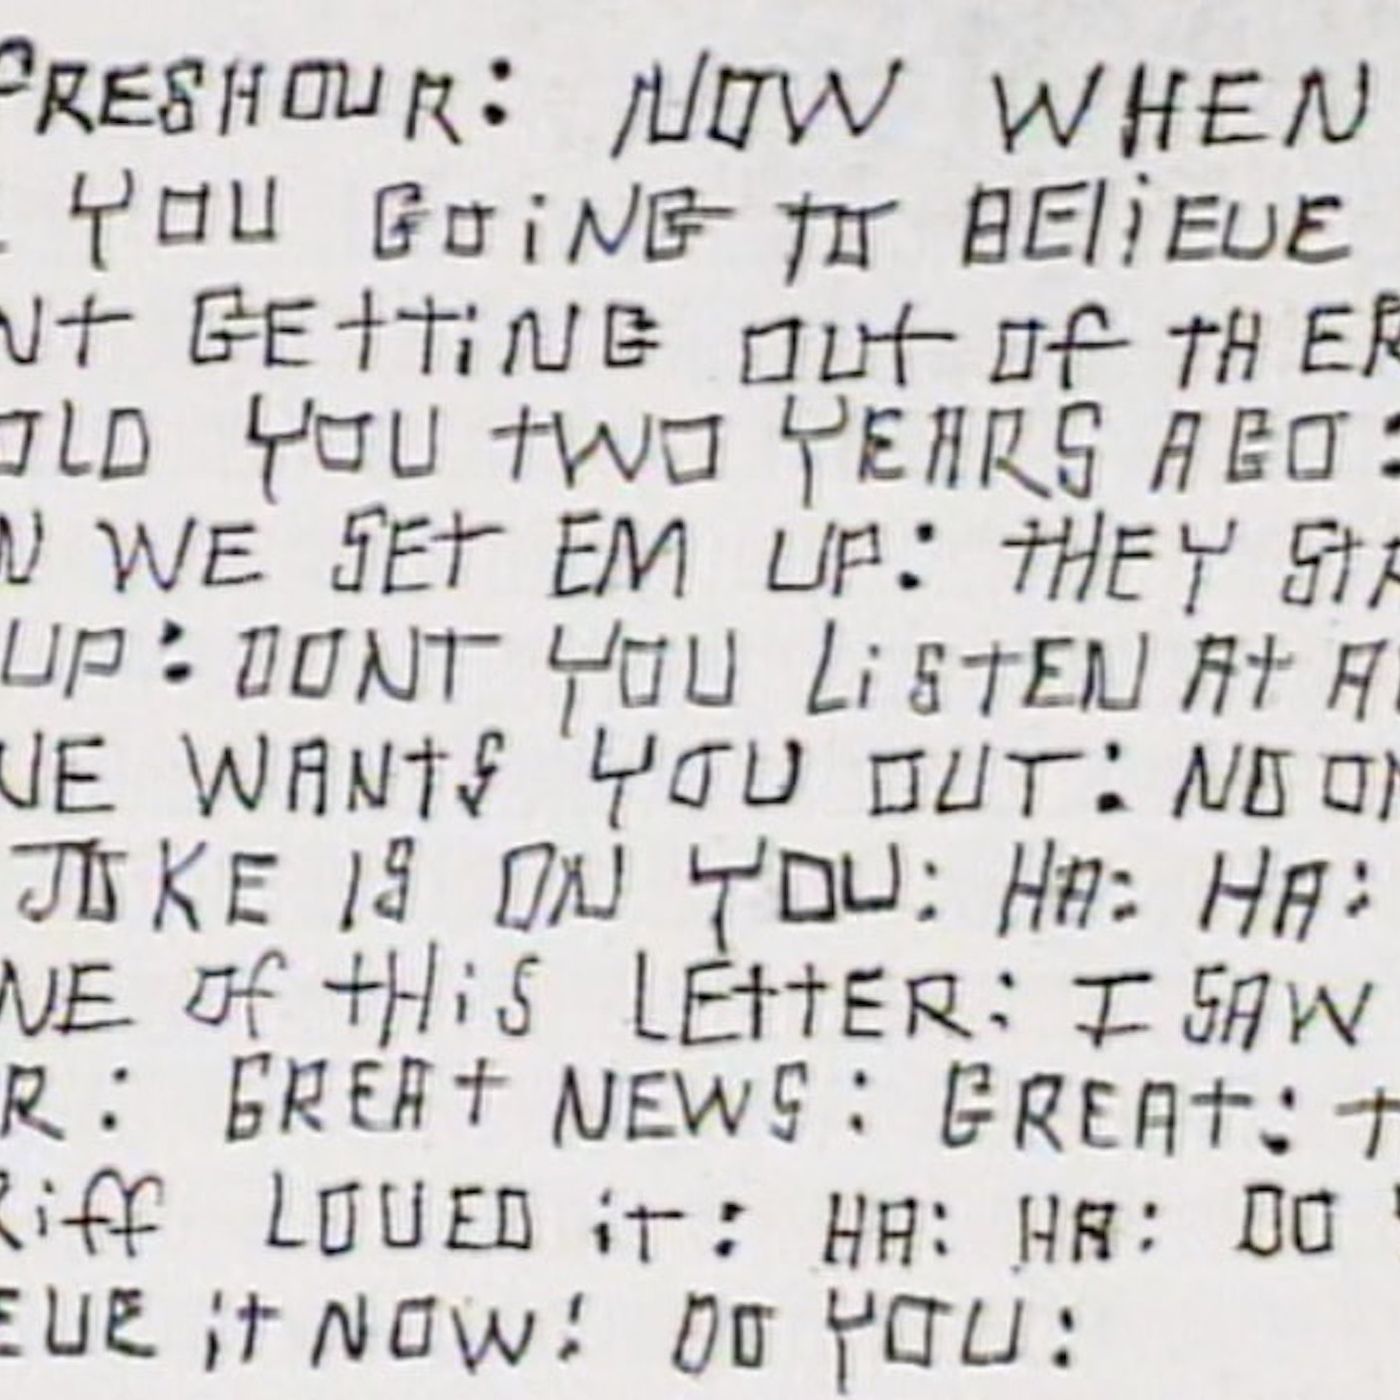 FRESHOUR: NOW WHEN
YOU GOiNG TO BEliEUE
NT GETTiNG OUT Of THER
OLD YOU TWO YEARS AGO:
N WE SET EM UP: THEY STA
UP: DONT YOU LiSTEN AT AL
NE WANTS YOU OUT: NO ON
JOKE IS ON YOU: HA: HA:
NE Of THiS LETTER: I SAW
R: GREAT NEWS: GREAT: T
Riff LOUED iT: HA: HA: DO Y
EUE iT NOW! DO YOU: